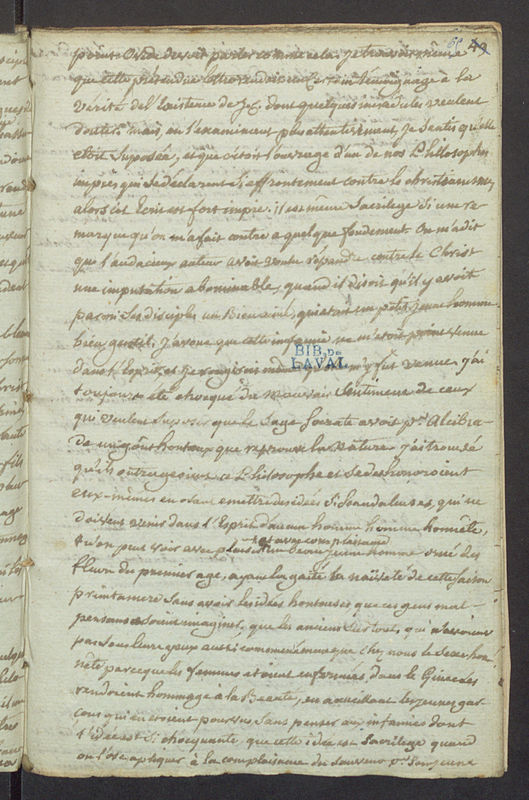 49
point Ovide devoit parler comme cela. je trouvois même
que cette prétendue lettre rendoit un certain témoignage a la
vérité de l'Existence de J.C. dont quelques incrédules veulent
douter. mais, en l'examinant plus attentivement, je sentis qu'elle
etoit Supposée, et que c'étoit l'ouvrage d'un de nos Philosophes
impies qui se déclarent si effrontement contre le christianisme,
alors cet Ecrit est fort impie. il est même Sacrilege si une re-
marque qu'on m'a fait contre a quelque fondement. On m'a dit
que l'audacieux auteur avoit voulu répandre contre le Christ
une imputation abominable, quand il disoit qu'il y avoit
parmi ses disciples un Bien aimé, qui etoit un petit jeune homme
bien gentil. J'avoue que cette infamie ne m'etoit point venue
dans l'Esprit, et je rougirois m'y fut venue. j'ai
BIB. DE
LAVAL
toujours été choqué du mauvais Sentiment de ceux
qui veulent Supposer que le Sage Socrate avoit pr. Alcibia-
de un goût honteux que reprouve la Nature. j'ai trouvé
qu'ils outrageoient ce Philosophe et se deshonoroient
eux-mêmes en osant emettre des idées si Scandaleuses, qui ne
doivent venir dans l'Esprit d'aucun homme honnête,
et avec complaisance
qu'on peut voir avec plaisir un beau jeune homme orné des
fleurs du premier age, ayant la gaité la naïveté de cette saison
printaniere sans avoir les idées honteuses que ces gens mal-
pensants osent imaginer, que les anciens sur tout, qui n'avoient
pas sous leurs yeux aussi communément que chez nous le Sexe hon-
nête parceque les femmes etoient enfermées dans le Ginecées
rendoient hommage a la Beauté, en accueillant les jeunes gar-
cons qui en etoient pourvus sans penser aux infamies dont
l'idée est si choquante, que cette idée est Sacrilege quand
on l'ose apliquer à la complaisance du Sauveur pr. Son jeune